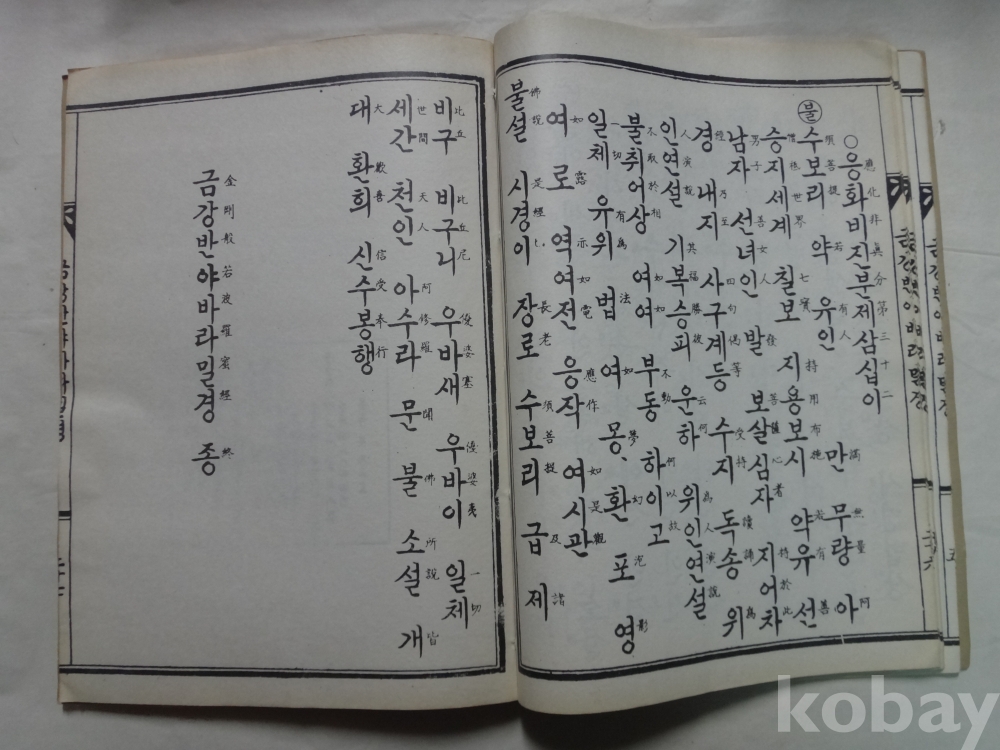 ○응화비진분제삼십이
應化非眞分第三十二
불 수보리 약 유인 만 무량 아
須菩提 若 有人 滿 無量 阿
승지세계 칠보 지용보시 약유선
僧祇世界 七寶 持用布施 若有善
남자 선녀인 발 보살심자 지어차
男子 善女人 發 菩薩心者 持於此
경 내지 사구계등 수지 독송 위
經 乃至 四句偈等 受持 讀誦 爲
인연설 기복승피 운하 위인연설
人演說 其福勝彼 云何 爲人演說
불취어상 여여부동 하이고
不取於相 如如不動 何以故
일체 유위 법 여몽、환 포 영
一切 有爲 法 如夢 幻 泡 影
여로 역여전 응작 여시관
如露 亦如電 應作 如是觀
불설 시경이 장로 수보리 급 제
佛說 是經已 長老 須菩提 及 諸
비구 비구니 우바새 우바이 일체
比丘 比丘尼 優婆塞 優婆夷 一切
세간 천인 아수라 문 불 소설 개
世間 天人 阿修羅 聞 佛 所說 皆
대환희 신수봉행
大歡喜 信受奉行
금강반야바라밀경 종
金剛般若波羅蜜經 終
금강반야바라밀경
二十六
五
금강반야바라밀경
二十七
kobay